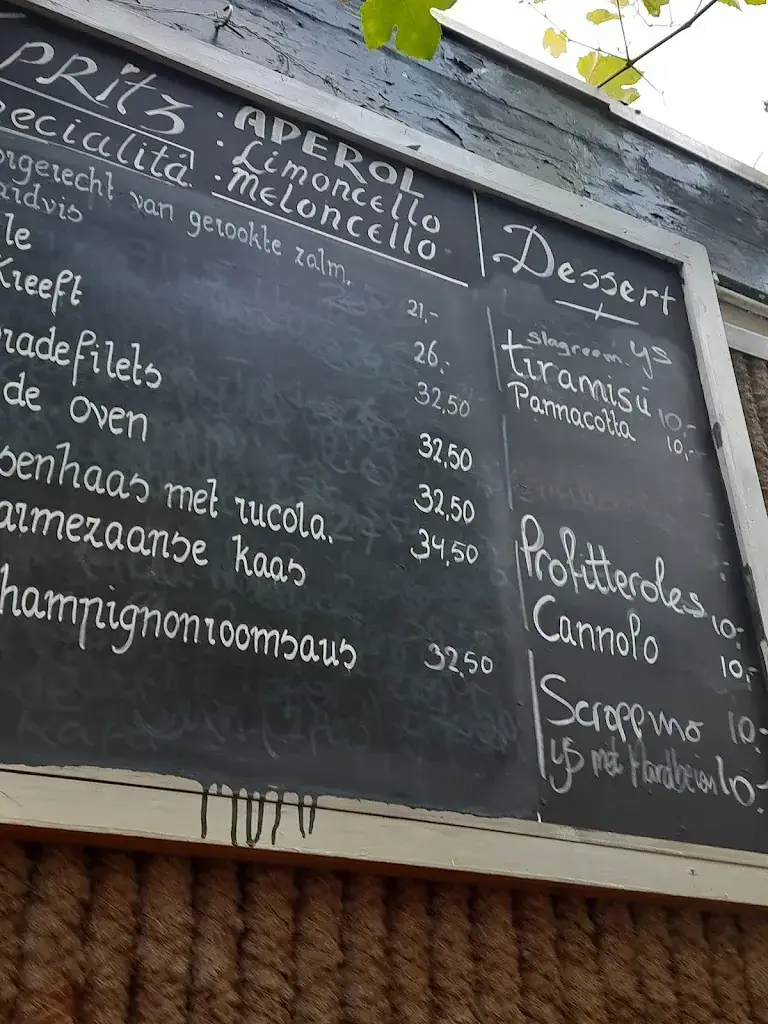 PRitz
· APEROL
· Limoncello
· Meloncello
pecialitá
orgerecht van gerookte zalm,
aardvis
le 21,-
Kreeft 26.-
radefilets 32,50
de oven 32,50
senhaas met rucola. 32,50
armezaanse kaas 34,50
hampignonroomsaus 32,50
Dessert
slagroom. ys
tiramisu 10,-
Pannacotta 10,-
Profitteroles 10,-
Cannolo 10,-
Scroppino 10.-
ys met Aardbeien 10.-